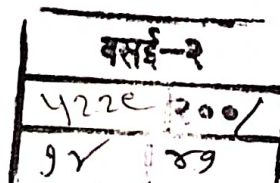 वसई-२
५२२९ २००८
१४ ४१